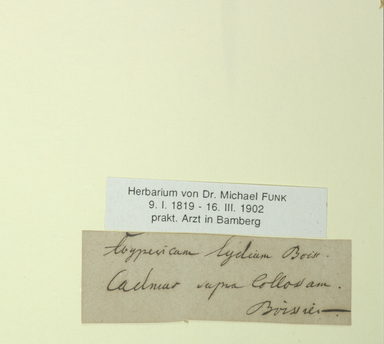 Herbarium von Dr. Michael FUNK
9. I. 1819 - 16. III. 1902
prakt. Arzt in Bamberg
Hypericum lydium Boiss.
Cadmus supra Collossam.
Boissier